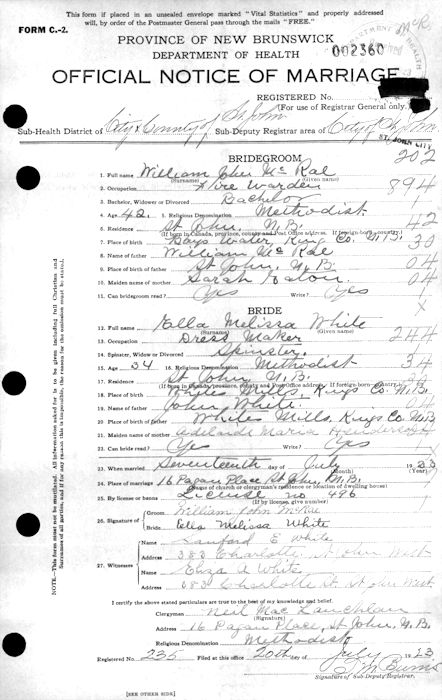 This form if placed in an unsealed envelope marked "Vital Statistics" and properly addressed
will, by order of the Postmaster General pass through the mails "FREE."
FORM C.-2.
PROVINCE OF NEW BRUNSWICK
DEPARTMENT OF HEALTH
002360
OFFICIAL NOTICE OF MARRIAGE
REGISTERED NO.
(For use of Registrar General only.)
Sub-Health District of City & County of St John Sub-Deputy Registrar area of City of St John
ST. JOHN CITY
202
BRIDEGROOM
1. Full name William John McRae
(Surname) (Given name)
2. Occupation Fire Warden 894
3. Bachelor, Widower or Divorced Bachelor 1
4. Age 42. 5. Religious Denomination Methodist
6. Residence St John, N.B. 42
(If born in Canada, province, county and Post Office address. If foreign-born, country)
7. Place of birth Bays Water, King Co. N.B. 30
8. Name of father William McRae
9. Place of birth of father St John, N.B. 04
10. Maiden name of mother Sarah Eaton 04
11. Can bridegroom read? Yes Write? Yes
X
BRIDE
12. Full name Ella Melissa White
(Surname) (Given name) 244
13. Occupation Dress Maker
14. Spinster, Widow or Divorced Spinster
15. Age 34 16. Religious Denomination Methodist 34
17. Residence St John N.B.
(If born in Canada, province, county and Post Office Address. If foreign-born, country)
18. Place of birth Whites Mills, Kings Co. N.B.
19. Name of father John White 04
20. Place of birth of father Whites Mills, Kings Co. N.B.
21. Maiden name of mother Adelaide Maria Henderson
22. Can bride read? Yes Write? Yes
23. When married Seventeenth day of July 1923
(Month) (Year)
24. Place of marriage 16 Pagan Place, St John, N.B.
(Name of church or clergyman's residence or location of dwelling house)
25. By license or banns License no 496
(If by license, give number)
26. Signature of
Groom William John McRae
Bride Ella Melissa White
27. Witnesses
Sanford E White
Address 383 Charlotte St John West
Eliza A White
Address 383 Charlotte St. St John West
I certify the above stated particulars are true to the best of my knowledge and belief.
Clergyman Neil MacLauchlan
(Signature)
Address 16 Pagan Place, St John, N.B.
Religious Denomination Methodist
Registered No. 235 Filed at this office 20th day of July 1923
Burns
Signature of Sub-Deputy Registrar.
[SEE OTHER SIDE.]
NOTE—This form must not be mutilated. All information asked for is to be given including full Christian and
Surnames of all parties, and if for any cause this is impossible, the reason for the omission must be stated.